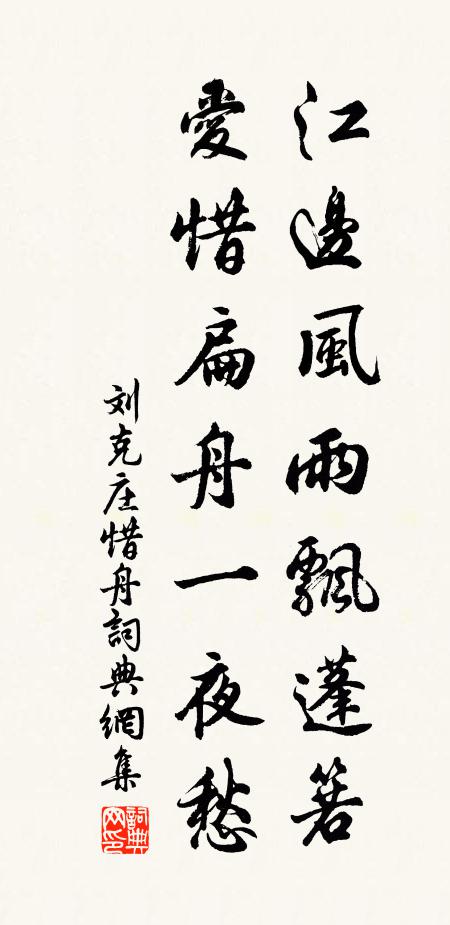 江邊風雨飄蓬箬
愛惜扁舟一夜愁
刘克庄惜舟詞典網集
詞典网印